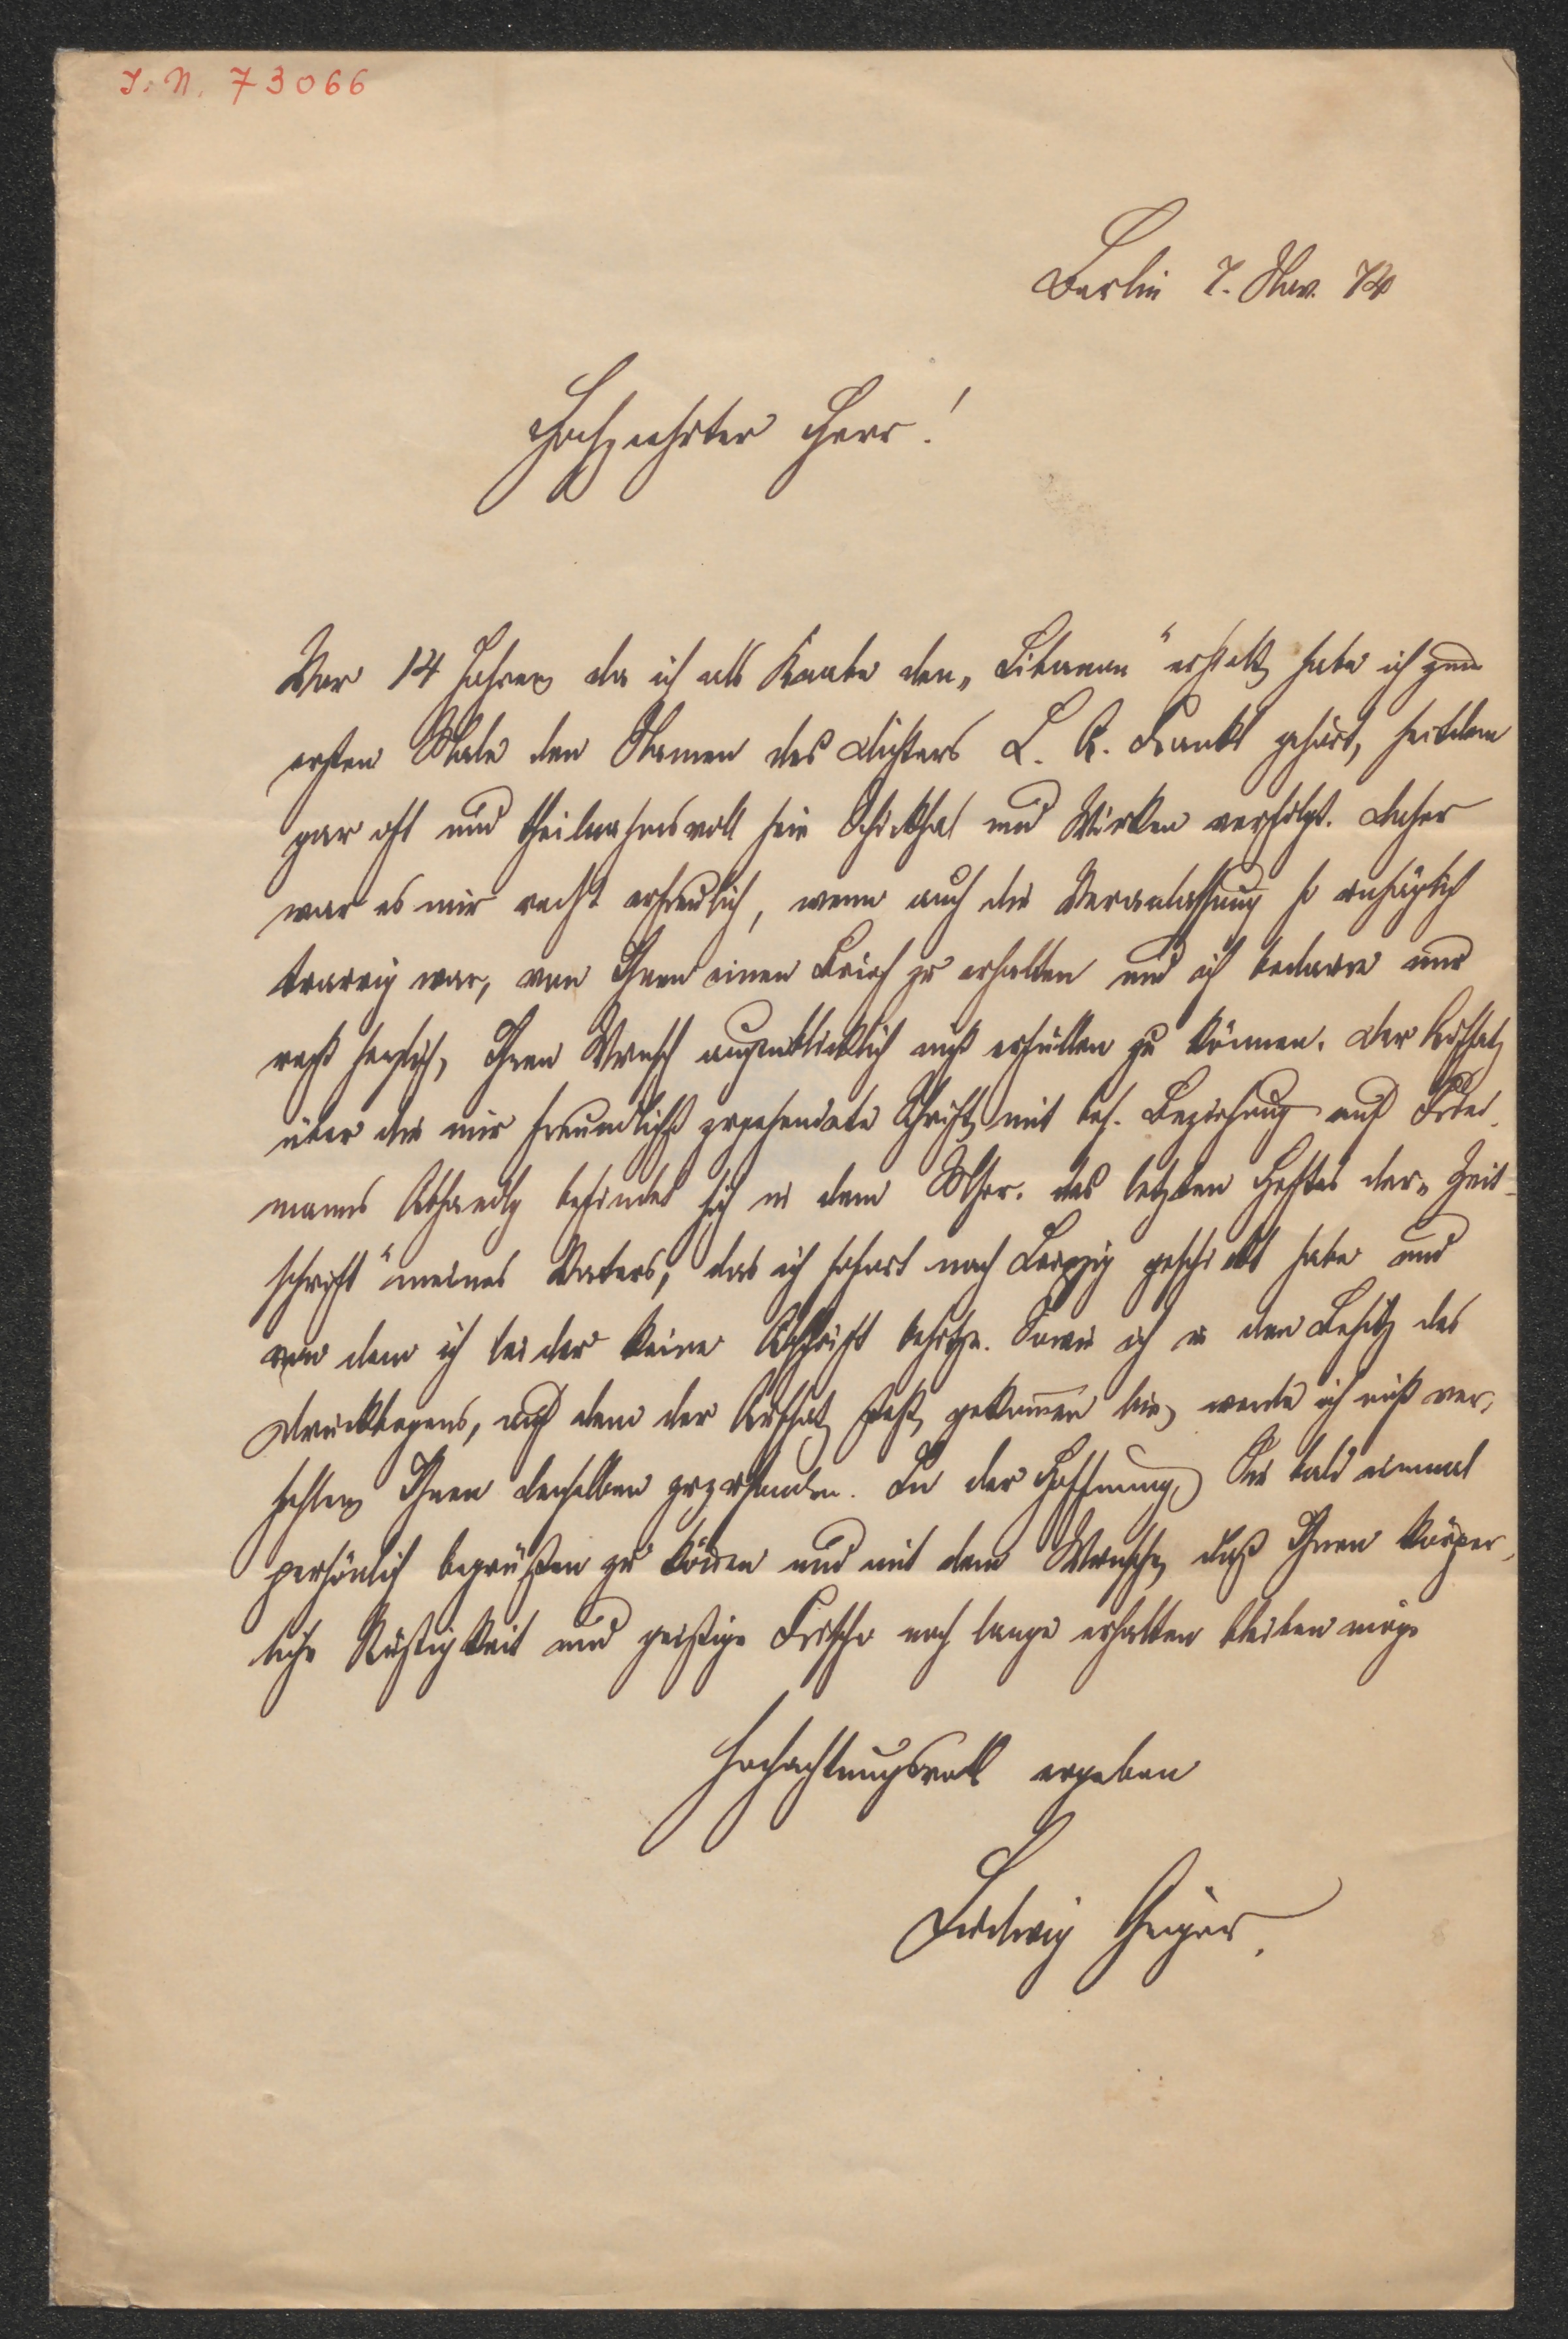 I. N. 73066
Berlin 7. Nov. 74
Hochgeehrter Herr!
Vor 14 Jahren, da ich als Knabe den „Libanon“ erhielt, habe ich zum
ersten Male den Namen des Dichters L. A. Frankl gehört, seitdem
gar oft und theilnahmsvoll sein Schicksal und Wirken verfolgt. Daher
war es mir recht erfreulich, wenn auch die Veranlassung so unsäglich
traurig war, von Ihnen einen Brief zu erhalten und ich bedaure nur
recht herzlich, Ihren Wunsch augenblicklich nicht erfüllen zu können. Der Aufsatz
über die mir freundlichst zugesendete Schrift, mit bes. Beziehung auf
manns Abhandlg befindet sich in dem Mscr. des letzten Heftes der „Zeit-
schrift“ meines Vaters, das ich sofort nach Leipzig geschickt habe und
von dem ich leider keine Abschrift besitze. Sowie ich in den Besitz des
Druckbogens, auf dem der Aufsatz steht, gekommen bin, werde ich nicht ver-
fehlen, Ihnen denselben zuzusenden. In der Hoffnung, Sie bald einmal
persönlich begrüßen zu können und mit dem Wunsche, daß Ihnen körper-
liche Rüstigkeit und geistige Frische noch lange erhalten bleiben möge
hochachtungsvoll ergeben
Ludwig Geiger.